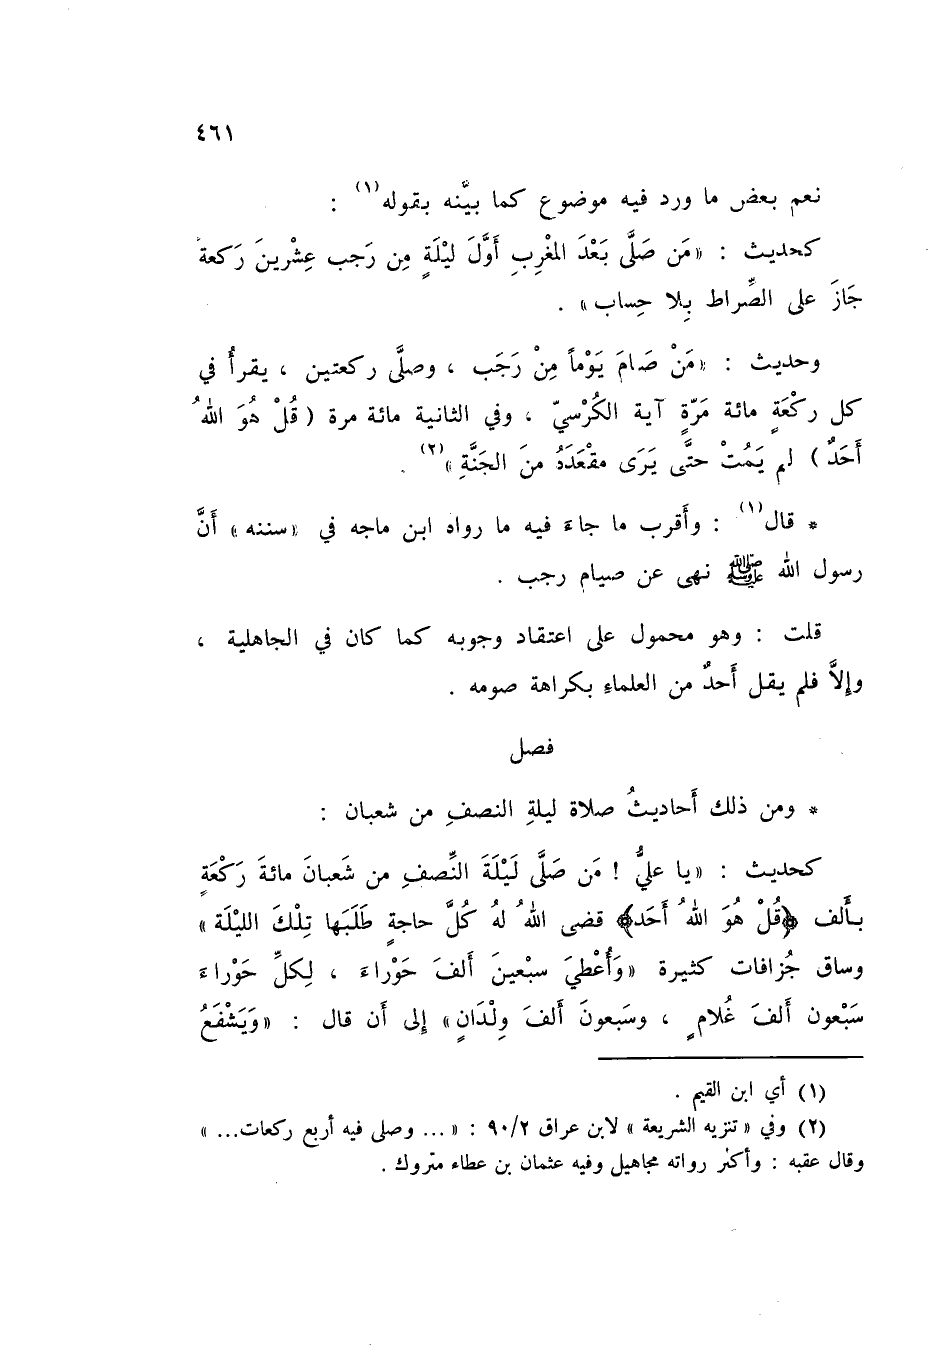 ٤٦١
نعم بعض ما ورد فيه موضوع كما بيَّنه بقوله(١) :
كحديث : «مَن صَلَّى بَعْدَ المغْرِبِ أَوَّلَ ليْلَةٍ مِن رَجب عِشْرينَ رَكعة
جَازَ على الصِّراط بِلا حِساب» .
وحديث : «مَنْ صَامَ يَوْماً مِنْ رَجَب ، وصلَّى ركعتين ، يقرأُ في
كل ركْعَةٍ مائة مَرّةٍ آية الكُرْسيّ ، وفي الثانية مائة مرة (قُلْ هُوَ اللهُ
أَحَدٌ) لم يَمُتْ حتَّى يَرَى مقْعَدَهُ منَ الجَنَّةِ»(٢) .
* قال(١) : وأَقرب ما جاءَ فيه ما رواه ابن ماجه في «سننه» أَنَّ
رسول الله ﷺ نهى عن صيام رجب .
قلت : وهو محمول على اعتقاد وجوبه كما كان في الجاهلية ،
وإلاَّ فلم يقل أَحدٌ من العلماءِ بكراهة صومه .
فصل
* ومن ذلك أَحاديثُ صلاة ليلةِ النصفِ من شعبان :
كحديث : «يا عليُّ ! مَن صَلَّى لَيْلَةَ النِّصفِ من شَعبانَ مائةَ رَكْعَةٍ
بأَلف ﴿قُلْ هُوَ اللهُ أَحَد﴾ قضى اللهُ لهُ كُلَّ حاجةٍ طَلَبَها تِلْكَ الليْلَة»
وساق جُزافات كثيرة «وَأُعْطيَ سبْعينَ أَلفَ حَوْراءَ ، لِكلِّ حَوْراءَ
سَبْعون أَلفَ غُلامٍ ، وسَبعونَ أَلفَ ولْدَانٍ» إلى أَن قال : «وَيَشْفَعُ
(١) أي ابن القيم .
(٢) وفي «تنزيه الشريعة» لابن عراق ٩٠/٢ : «... وصلى فيه أربع ركعات...»
وقال عقبه : وأكثر رواته مجاهيل وفيه عثمان بن عطاء متروك .